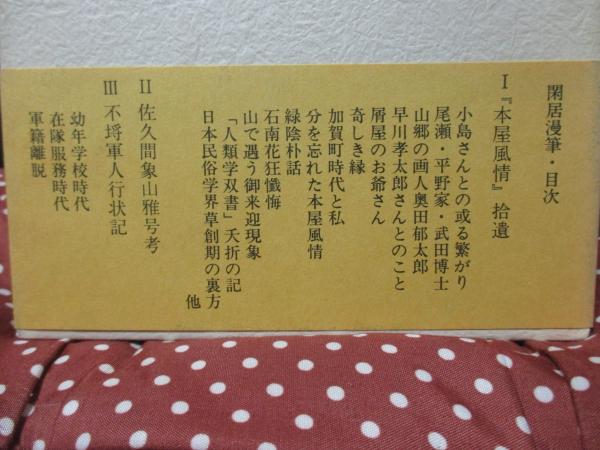 閑居漫筆・目次
Ⅰ『本屋風情』拾遺
小島さんとの或る繋がり
尾瀬・平野家・武田博士
山郷の画人奥田郁太郎
早川孝太郎さんとのこと
屑屋のお爺さん
奇しき縁
加賀町時代と私
分を忘れた本屋風情
緑陰朴話
石南花狂懺悔
山で遇う御来迎現象
「人類学双書」夭折の記
日本民俗学界草創期の裏方
他
Ⅱ 佐久間象山雅号考
Ⅲ 不埒軍人行状記
幼年学校時代
在隊服務時代
軍籍離脱